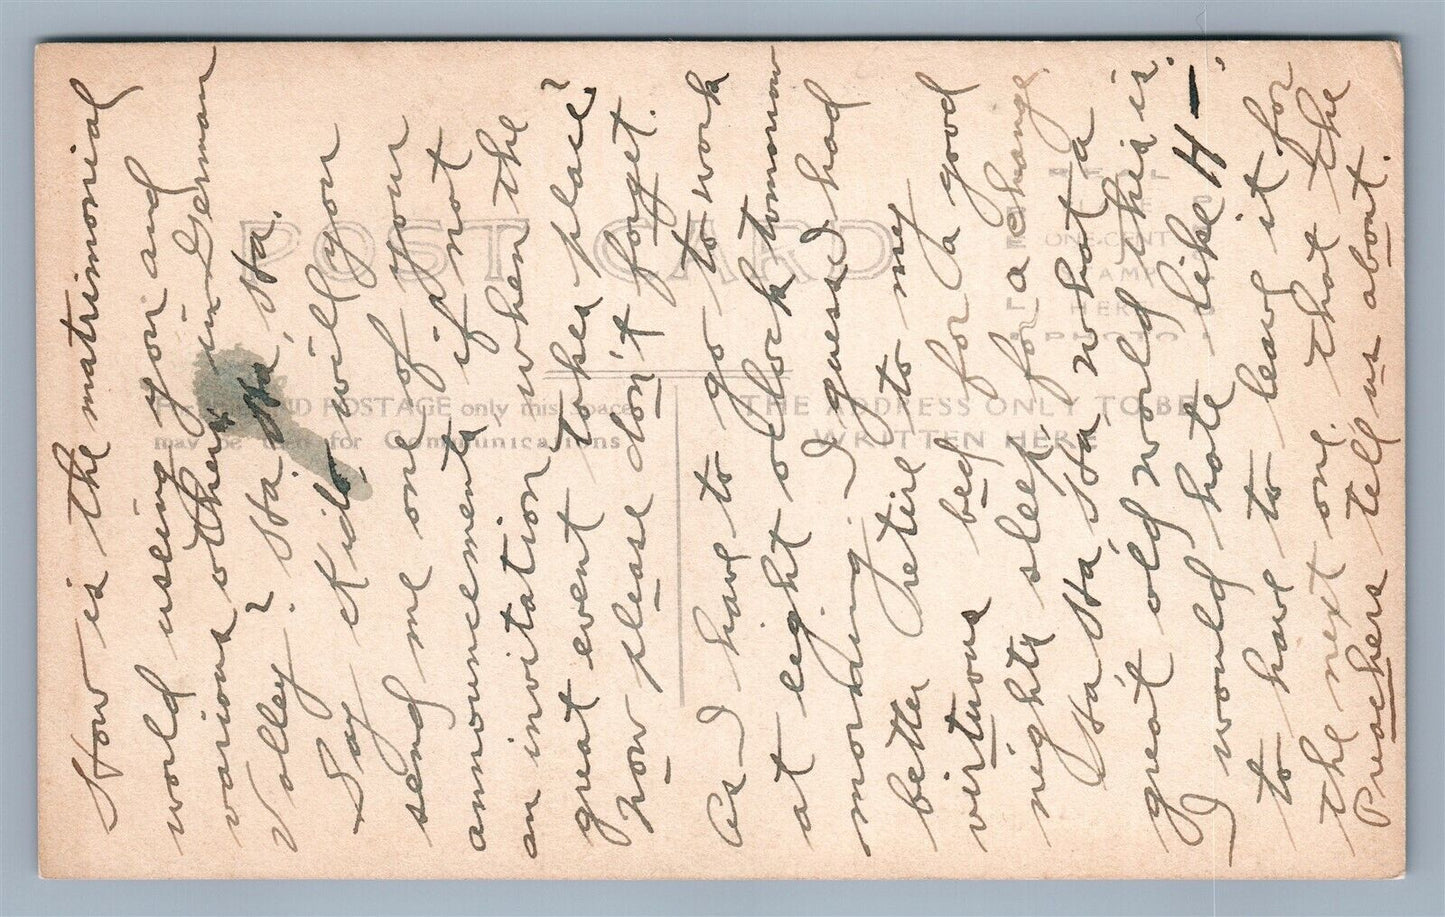 How is the matrimonial
world useing you and
various others in German
Valley? Ha, Ha, Ha, Ha.
Say Kido will you
send me one of your
announcements if not
an invitation when the
great event takes place?
now please don't forget.
As I have to go to work
at eight oclock tomorrow
morning I guess I had
better retire to my
virtuous bed for a good
nights sleep for a change
Ha Ha, Ha, Ha what a
great old world this is.
I would hate like H—
to have to leave it for
the next one that the
Preachers tell us about.
POST CARD
AND POSTAGE only this space
may be used for Communications
THE ADDRESS ONLY TO BE
WRITTEN HERE
ONE CENT
STAMP
HERE